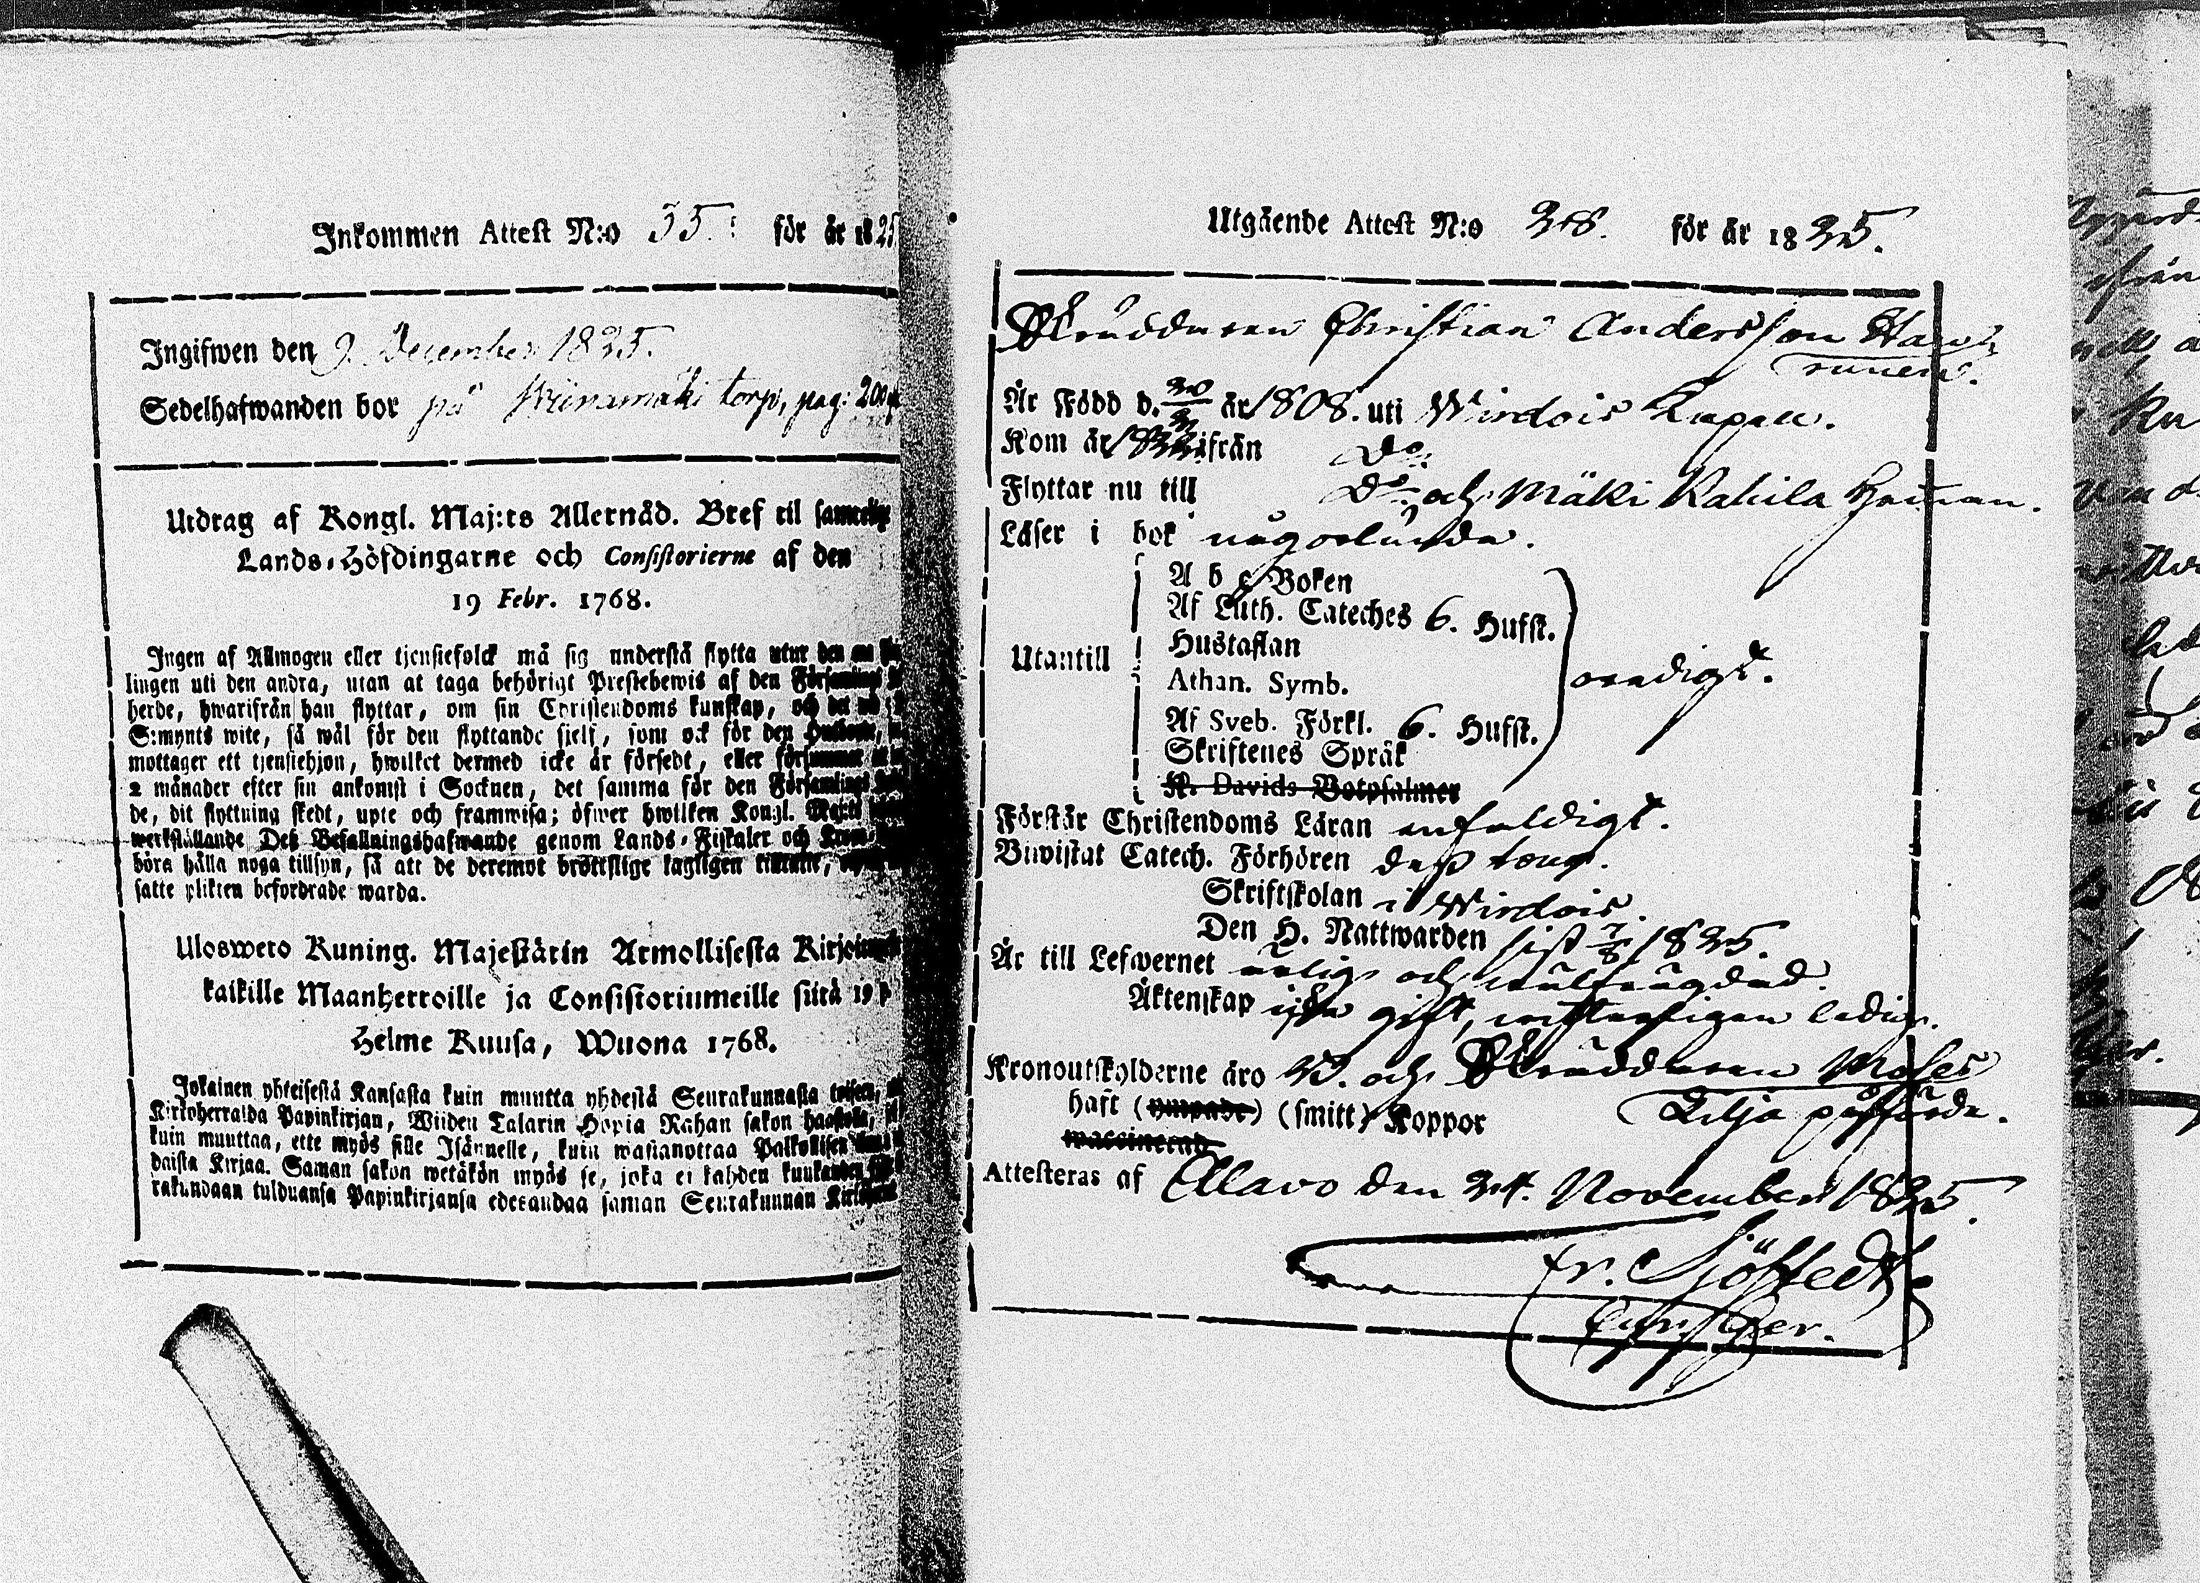 Inkommen Attest N:o 35. för år 1825
Ingifwen den 9 December 1825.
Sedelhafwanden bor på torp, pag: 200
Utdrag af Kongl. Maj:ts Allernåd. Bref til samtlige
Lands-Höfdingarne och Consistorierne af den
19 Febr. 1768.
Ingen af Allmogen eller tjenstefolck må sig understå flytta utur den ena
lingen uti den andra, utan at taga behörigt Prestebewis af den Församlings
herde, hwarifrån han flyttar, om sin Christendoms kunskap, och det wid
S:mynts wite, så wäl för den flyttande sjelf, som ock för den Husbonde,
mottager ett tjenstehjon, hwilket dermed icke är försedt, eller försummar
2 månader efter sin ankomst i Socknen, det samma för den Församlings
de, dit flyttning skedt, upte och framwisa; öfwer hwilken Kongl. Maj:ts
werkställande Deß Befallningshafwande genom Lands-Fiskaler och
böra hålla noga tillsyn, så att de deremot brottslige lagligen tilltalte,
satte plikten befordrade warda.
Ulosweto Kuning. Majestätin Armollisesta Kirjoituxesta
kaikille Maanherroille ja Consistoriumeille siitä 19 p.
Helme Kuusa, Wuona 1768.
Jokainen yhteisestä Kansasta kuin muutta yhdestä Seurakunnasta toiseen,
Kirkoherralda Papinkirjan, Wiiden Talarin Hopia Rahan sakon haastolla,
kuin muuttaa, ette myös sille Isännelle, kuin wastanottaa Palkollisen
daista Kirjaa. Saman sakon wetäkön myös se, joka ei kahden kuukauden
rakundaan tulduansa Papinkirjansa edesandaa saman Seurakunnan
Utgående Attest N:o 248. för år 1825.
Skräddaren Christian Andersson
Är Född d. 20/2 år 1808. uti Wirdois Capell.
Kom år ifrån Do
Flyttar nu till Do och Mäki Kahila Hemman.
Läser i bok någorlunda.
A b c Boken
Af Luth. Cateches 6. Hufst.
Hustaflan
Utantill
Athan. Symb.
oredigt.
Af Sveb. Förkl. 6. Hufst.
Skriftenes Språk
K. Davids Botpsalmer
Förstår Christendoms Läran enfaldigt.
Biwistat Catech. Förhören
Skriftskolan i Wirdois.
Den H. Nattwarden sist 7/8 1825.
Är till Lefwernet ärlig och wälfrägdad.
Äktenskap icke gift, ledig.
Kronoutskylderne äro Skräddaren Moses
Lilja påförde.
haft (ympade) (smitt) Koppor
waccinerad
Attesteras af Alavo den 24. November 1825.
Er. Sjöstedt.